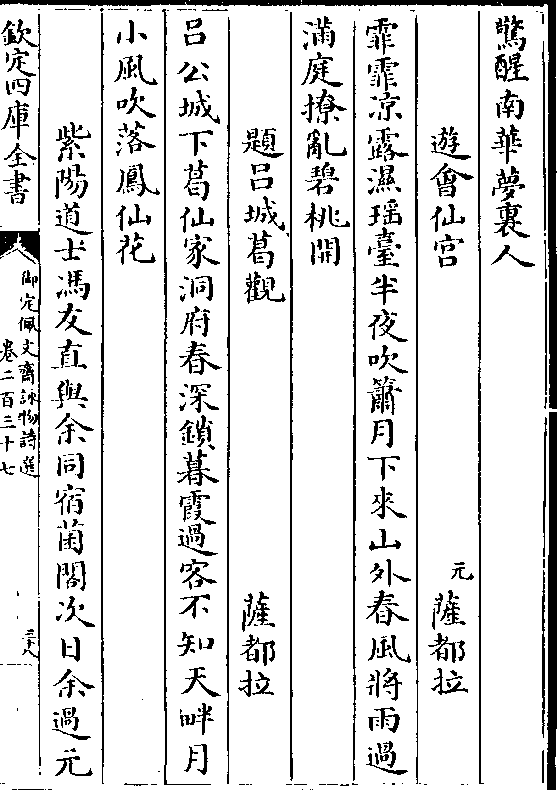 驚醒南華夢裏人
遊會仙宫
元
薩都拉
霏霏凉露濕瑶臺半夜吹簫月下來山外春風將雨過
滿庭撩亂碧桃開
題吕城葛觀
薩都拉
吕公城下葛仙家洞府春深鎖暮霞過客不知天畔月
小風吹落鳳仙花
紫陽道士馮友直與余同宿菌閣次日余過元
欽定四庫全書
御定佩文齋詠物詩選
卷二百三十七